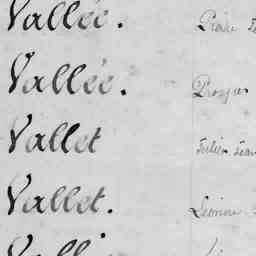 Vallée. Pierre
Vallée. Prosper
Vallet Julien Jean
Vallet.